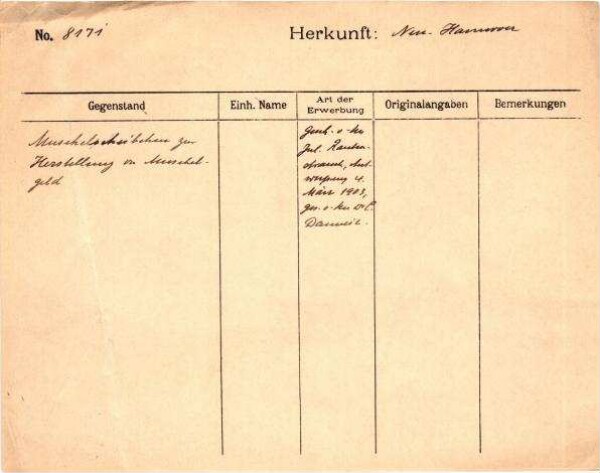 No. 8171 Herkunft: Neu-Hannover
Gegenstand Einh. Name Art der Erwerbung Originalangaben Bemerkungen
Muschelscheibchen zur
Herstellung von Muschel-
geld
Gesch. v. Hn
Jul. Rauten-
strauch, Ant-
werpen, 4.
März 1903,
ges. v. Hn